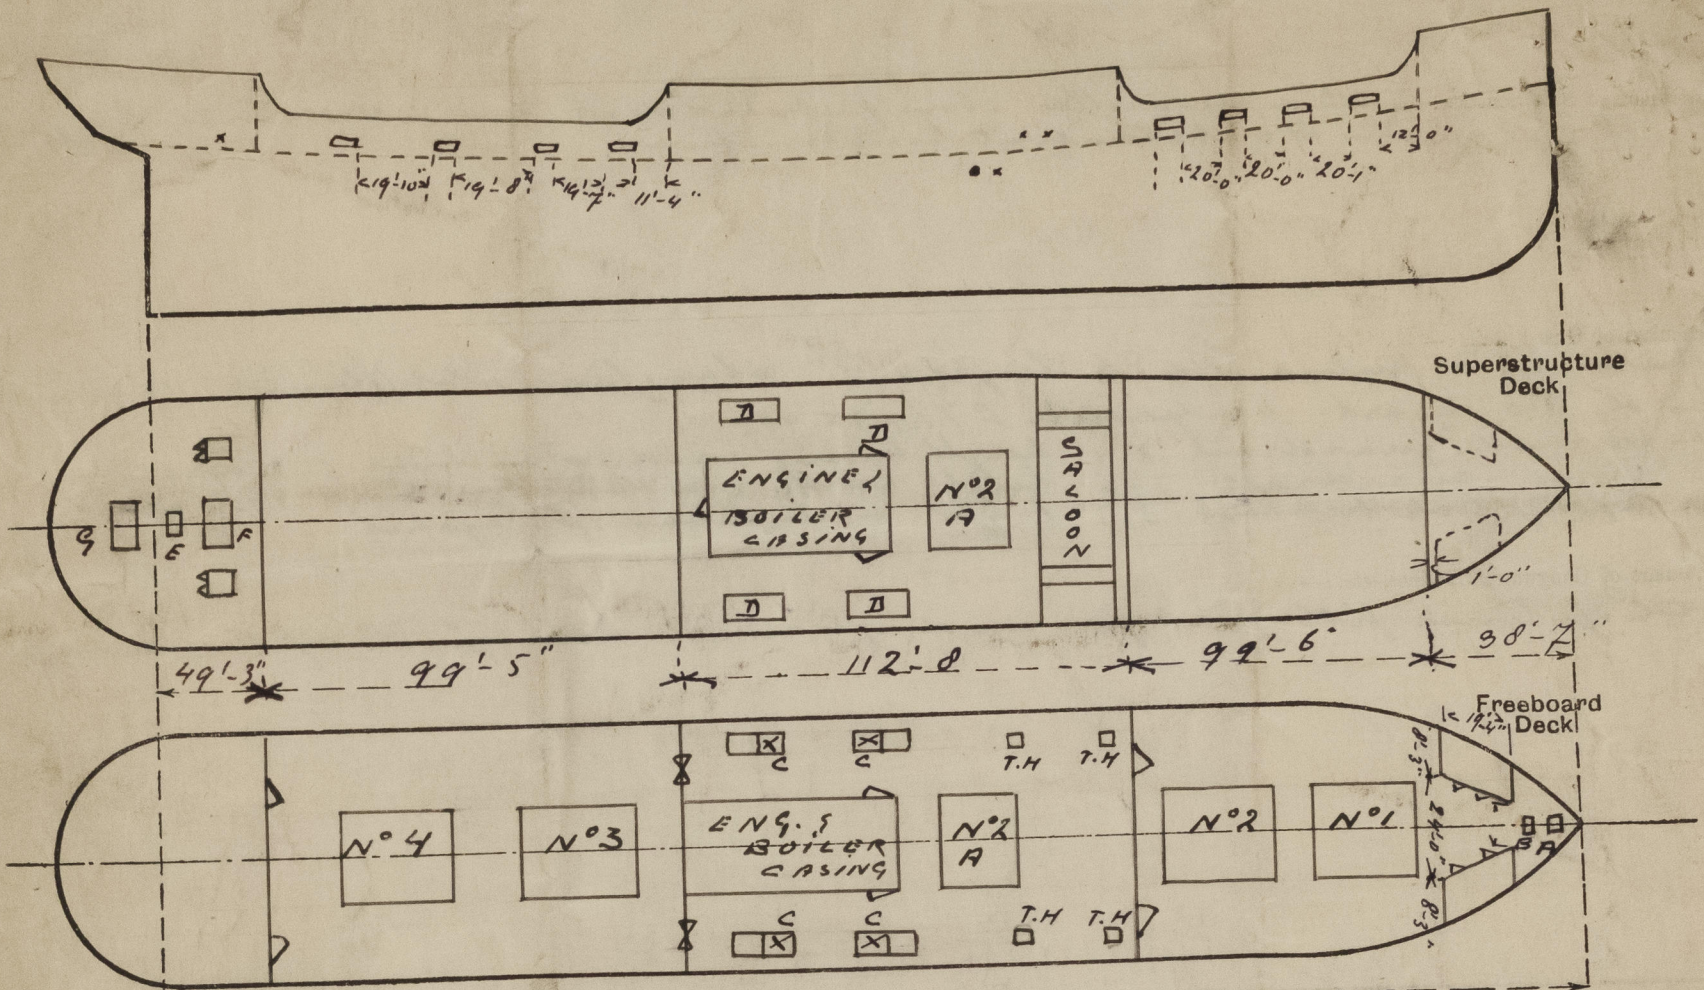 19'-10"
19'-8"
19'-7"
11'-4"
20'-0"
20'-0"
20'-1"
12'-0"
Superstructure
Deck
D
D
ENGINE &
BOILER
CASING
N°2
A
SALOON
G
E
F
D
D
1'-0"
49'-3"
99'-5"
112'-8
99'-6"
38'-7"
Freeboard
Deck
8'-3"
C
C
T.H
T.H
N° 4
N°3
ENG. &
BOILER
CASING
N°2
A
N°2
N°1
24'-0"
B
A
C
C
T.H
T.H
8'-3"